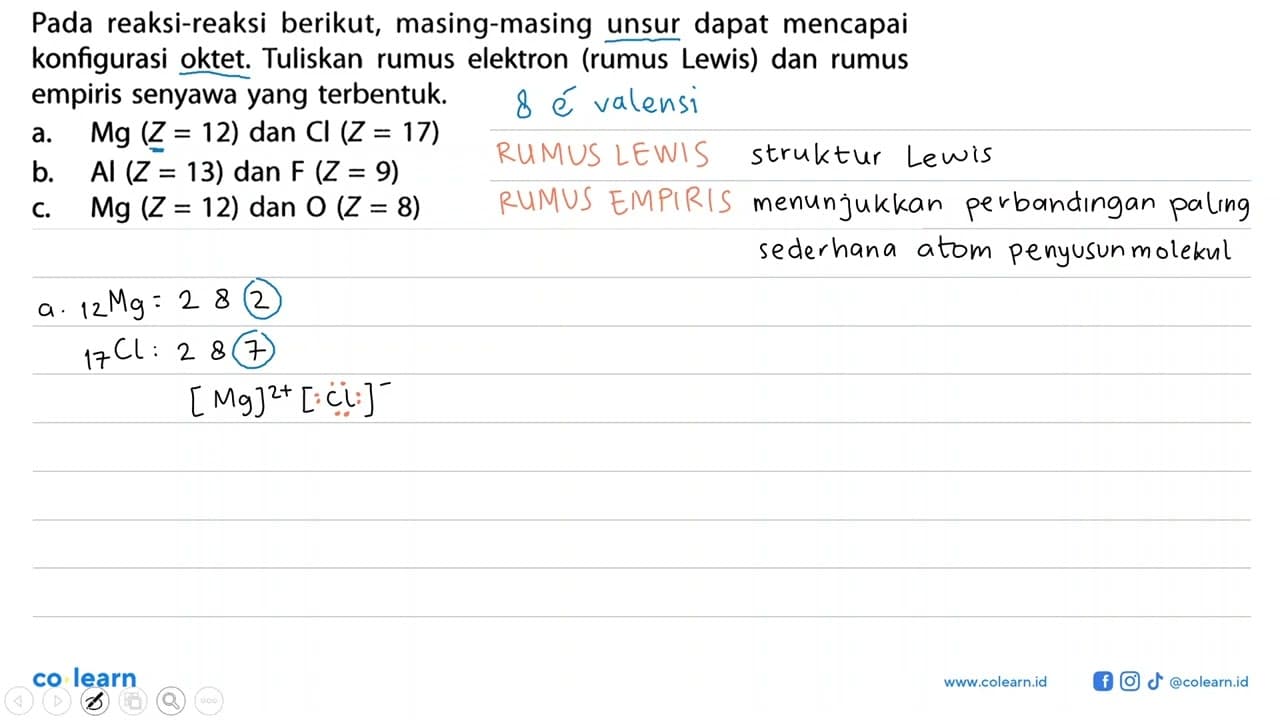 Pada reaksi-reaksi berikut, masing-masing unsur dapat mencapai
konfigurasi oktet. Tuliskan rumus elektron (rumus Lewis) dan rumus
empiris senyawa yang terbentuk.
8 é valensi
a. Mg (Z = 12) dan Cl (Z = 17)
RUMUS LEWIS struktur Lewis
b. Al (Z = 13) dan F (Z = 9)
c. Mg (Z = 12) dan O (Z = 8)
RUMUS EMPIRIS menunjukkan perbandingan paling
sederhana atom penyusun molekul
a. ₁₂Mg = 2 8 2
₁₇Cl : 2 8 7
[Mg]²⁺ [:C̈l:]⁻
co learn
www.colearn.id @colearn.id